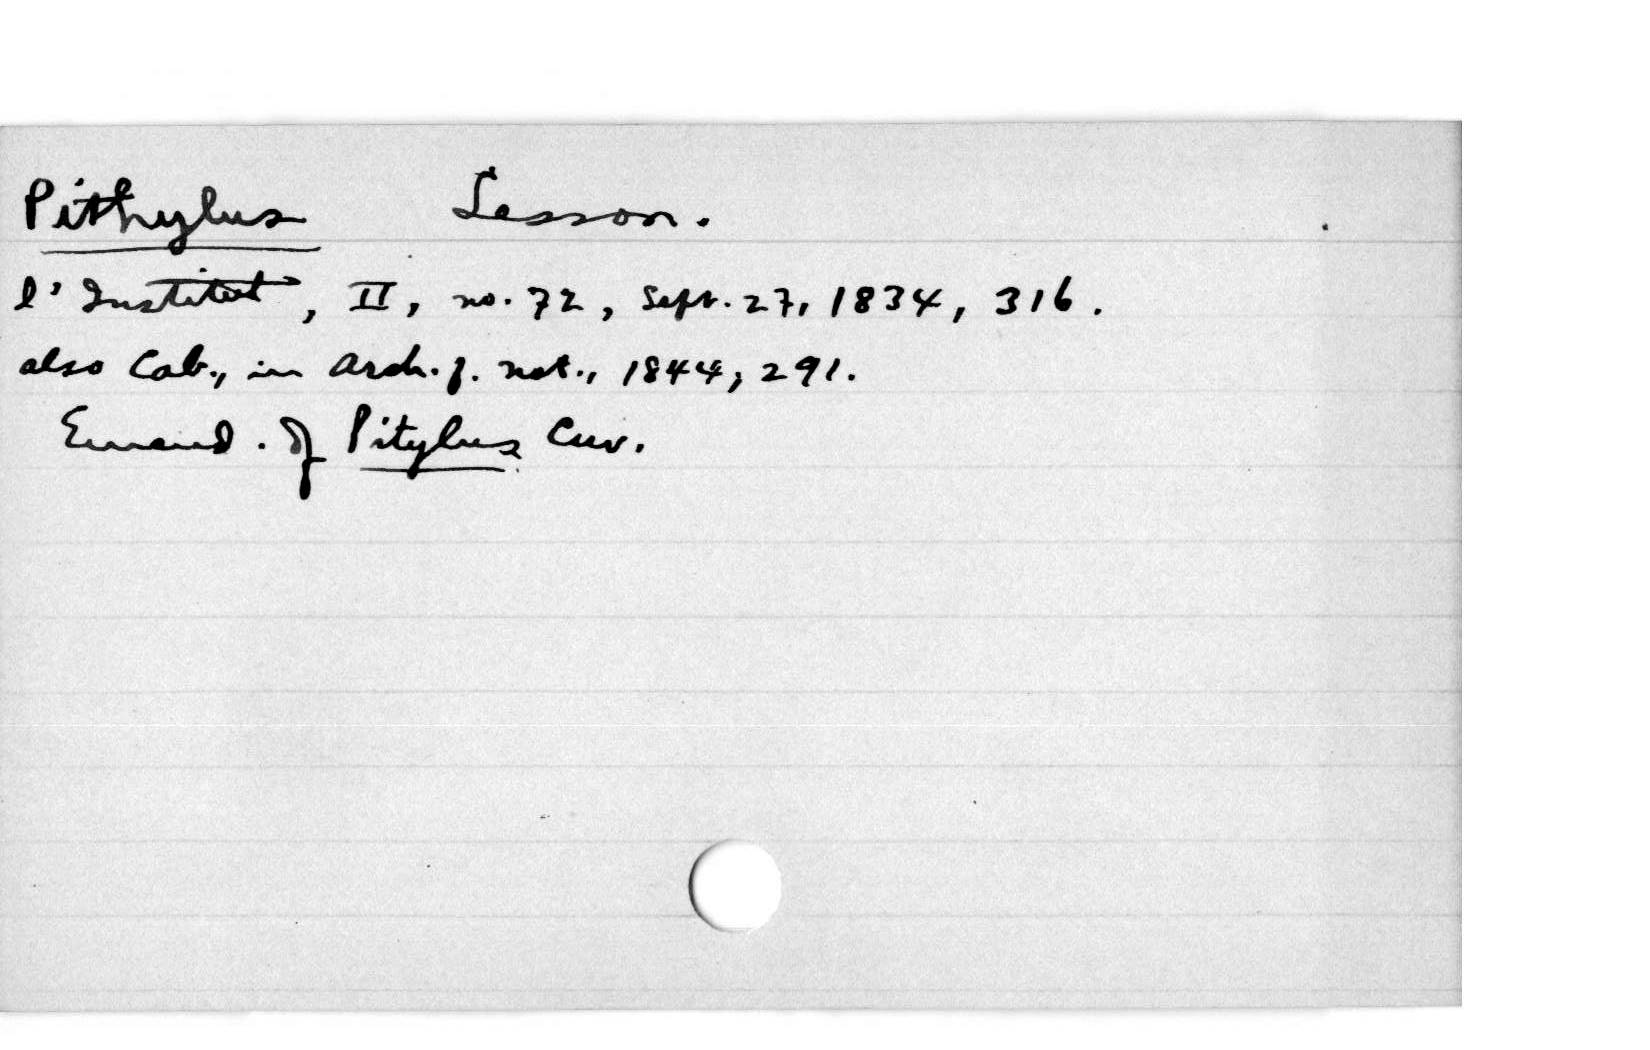 Pithylus Lesson.
l'Institut, II, no. 72, Sept. 27, 1834, 316.
also Cab., in Arch. f. nat., 1844, 291.
Emend. of Pitylus Cuv.